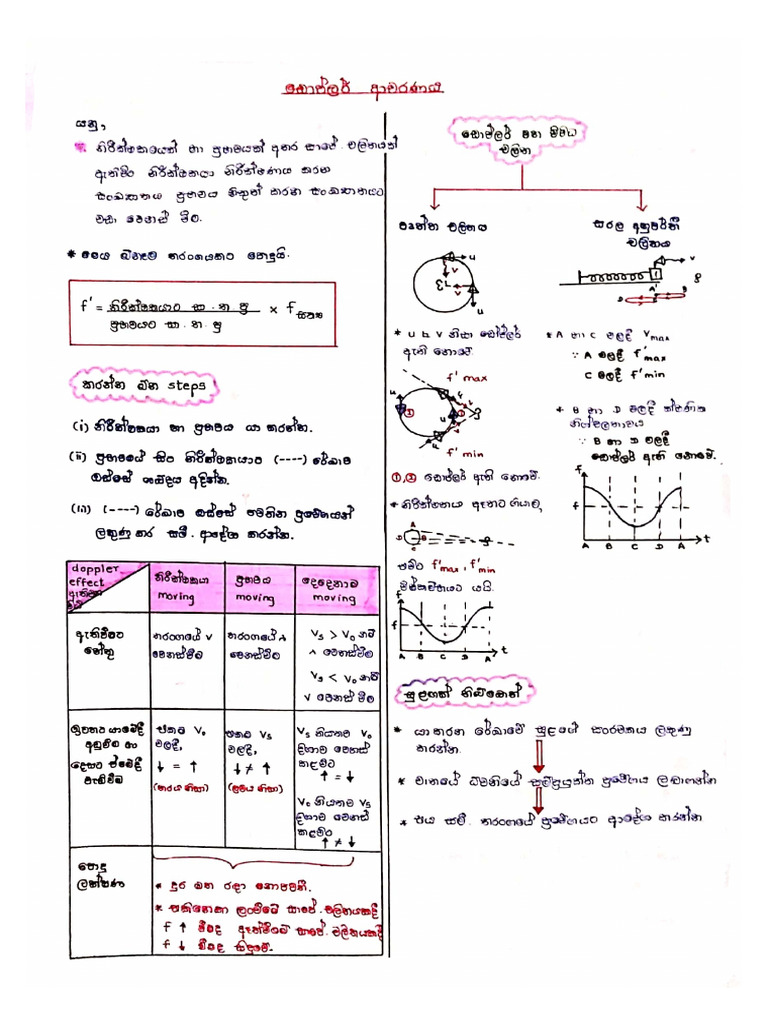 ඩොප්ලර් ආචරණය
යනු,
* නිරීක්ෂකයෙක් හා ප්‍රභවයක් අතර සාපේ. චලිතයක්
ඇතිවිට නිරීක්ෂකයා නිරීක්ෂණය කරන
සංඛ්‍යාතය ප්‍රභවය නිකුත් කරන සංඛ්‍යාතයට
වඩා වෙනස් වීම.
* මෙය ඕනෑම තරංගයකට පොදුයි.
f' = නිරීක්ෂකයාට සා . ත . ප්‍ර × f සත්‍ය
ප්‍රභවයට සා . ත . ප්‍ර
කරන්න ඕන steps
(i) නිරීක්ෂකයා හා ප්‍රභවය යා කරන්න.
(ii) ප්‍රභවයේ සිට නිරීක්ෂකයාට (----) රේඛාව
ඔස්සේ අඳින්න.
(iii) (----) රේඛාව ඔස්සේ පවතින ප්‍රවේගයන්
ලකුණු කර සමී. ආදේශ කරන්න.
doppler
effect
නිරීක්ෂකයා
moving
ප්‍රභවය
moving
දෙදෙනාම
moving
ඇතිවීමට
හේතු
තරංගයේ V
වෙනස්වීම
තරංගයේ λ
වෙනස්වීම
Vs > Vo නම්
λ වෙනස්වීම
Vs < Vo නම්
V වෙනස්වීම
එකම Vo
වලදී,
↓ = ↑
එකම Vs
වලදී,
↓ ≠ ↑
Vs නියතව Vo
දිශාව වෙනස්
කළවිට
↑ = ↓
Vo නියතව Vs
දිශාව වෙනස්
කළවිට
↑ ≠ ↓
පොදු
ලක්ෂණ
* දුර මත රඳා නොපවතී.
* එකිනෙකා ලංවීමේ සාපේ. චලිතයකදී
f ↑ වීමද ඈත්වීමේ සාපේ. චලිතයකදී
f ↓ වීමද සිදුවේ.
ඩොප්ලර් සහ විවිධ
චලිත
වෘත්ත චලිතය
සරල අනුවර්තී
චලිතය
u
v
v
u
v
A'
B
D
* u ⊥ v නිසා ඩොප්ලර්
ඇති නොවේ.
f' max
u
u
① ②
f' min
①,② ඩොප්ලර් ඇති නොවේ.
* නිරීක්ෂකයා ඈතට ගියවිට
A
C
එවිට f'max , f'min
වෘත්තයට යයි.
f
f
A B C D A'
t
* A හා C වලදී Vmax
∵ A වලදී f'max
C වලදී f'min
* B හා D වලදී ක්ෂණික
නිශ්චලතාවය
∵ B හා D වලදී
ඩොප්ලර් ඇති නොවේ.
f
f
A B C D A
t
සුළඟක් තිබ්බොත්
* යා කරන රේඛාවේ සුළගේ සංරචකය ලකුණු
කරන්න.
* වාතයේ ධ්වනියේ සම්ප්‍රයුක්ත ප්‍රවේගය ලබාගන්න
* එය සමී. තරංගයේ ප්‍රවේගයට ආදේශ කරන්න